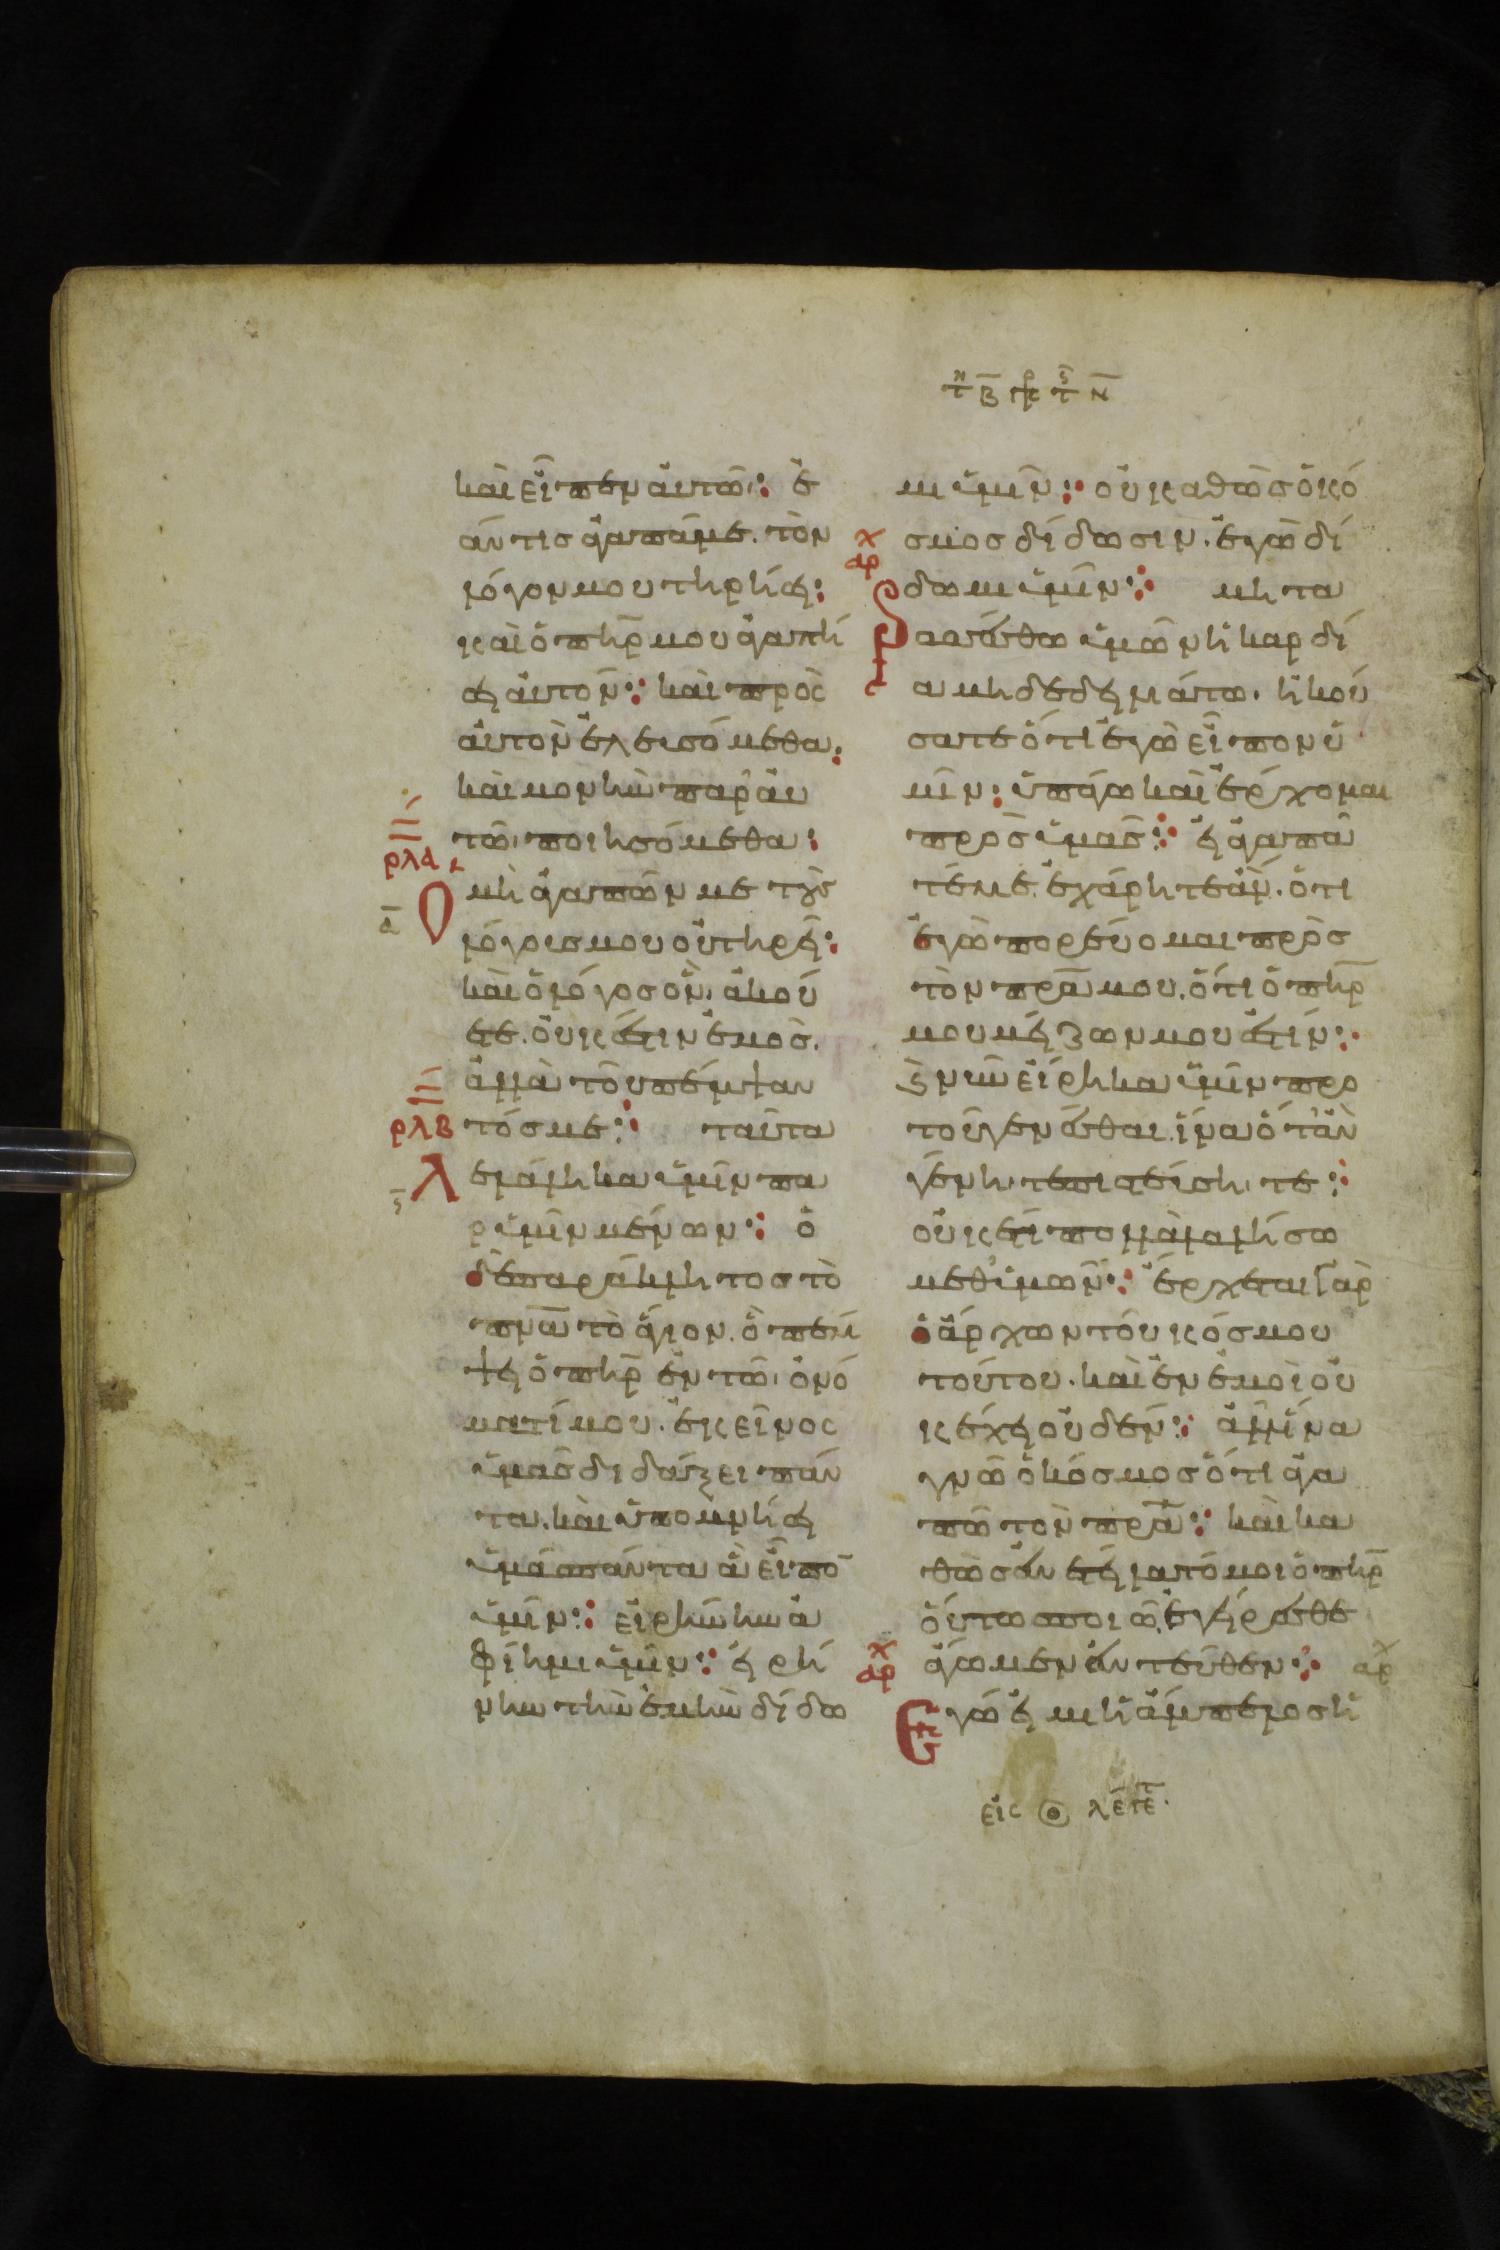 καὶ εἶπεν αὐτῶ: ἐ
άν τισ ἀγαπάμε. τὸν
λόγον μου τηρήσει:
καὶ ὁ πη̅ρ μου ἀγαπή
σει αὐτόν: καὶ πρὸς
αὐτὸν ἐλευσόμεθα:
καὶ μονὴν παρ' ἀυ
τῶ ποιησόμεθα:
ρλα
Ο μὴ ἀγαπῶν με τοὺς
λόγουσ μου οὐ τηρεῖ:
καὶ ὁ λόγοσ ὃν ἀκού
ετε. οὐκ ἔστιν ἐμὸσ.
ἀλλὰ τοῦ πέμψαν
ρλβ
τόσ με: ταῦτα
λελάληκα ὑμῖν πα
ρ' ὑμῖν μένων: ὁ
δὲ παράκλητοσ τὸ
πν̅α τὸ ἅγιον. ὃ πέμ
ψει ὁ πη̅ρ ἐν τῶ ὀνό
ματί μου. ἐκεῖνος
ὑμᾶσ διδάξει πάν
τα. καὶ ὑπομνήσει
ὑμᾶσ πάντα ἃ εἶπο̅
ὑμῖν: εἰρήνην ἀ
φίημι ὑμῖν: εἰρή
νην τὴν ἐμὴν δίδω
μι ὑμῖν: οὐ καθὼσ ὁ κό
σμοσ δίδωσιν. ἐγὼ δί
αρχ
δωμι ὑμῖν: μὴ τα
ρασσέσθω ὑμῶν ἡ καρδί
α μηδὲ δειλιάτω. ἠκού
σατε ὅτι ἐγὼ εἶπον ὑ
μῖν: ὑπάγω καὶ ἔρχομαι
πρὸσ ὑμᾶσ: εἰ ἠγαπᾶ
τέ με. ἐχάρητε ἄν. ὅτι
ἐγὼ πορεύομαι πρὸσ
τὸν πρ̅α μου. ὅτι ὁ πη̅ρ
μου μείζων μου ἐστίν:
ϗ νῦν εἴρηκα ὑμῖν προ
τοῦ γενέσθαι. ἵνα ὅταν
γένηται πιστεύσητε:
οὐκ έτι πολλὰ λαλήσω
μεθ' ὑμῶν: ἔρχεται γὰρ
ὁ ἄρχων τοῦ κόσμου
τούτου. καὶ ἐν ἐμοὶ οὐ
κ έχει οὐδέν: ἀλλ' ἵνα
γνῶ ὁ κόσμοσ ὅτι ἀγα
πῶ τὸν πρ̅α: καὶ κα
θὼσ ἐνετείλατό μοι ὁ πη̅ρ
οὕτω ποιῶ. ἐγείρεσθε
αρχ
ἄγωμεν ἐντεῦθεν: αρχ
Εγώ εἰμι ἡ ἄμπελοσ ἡ